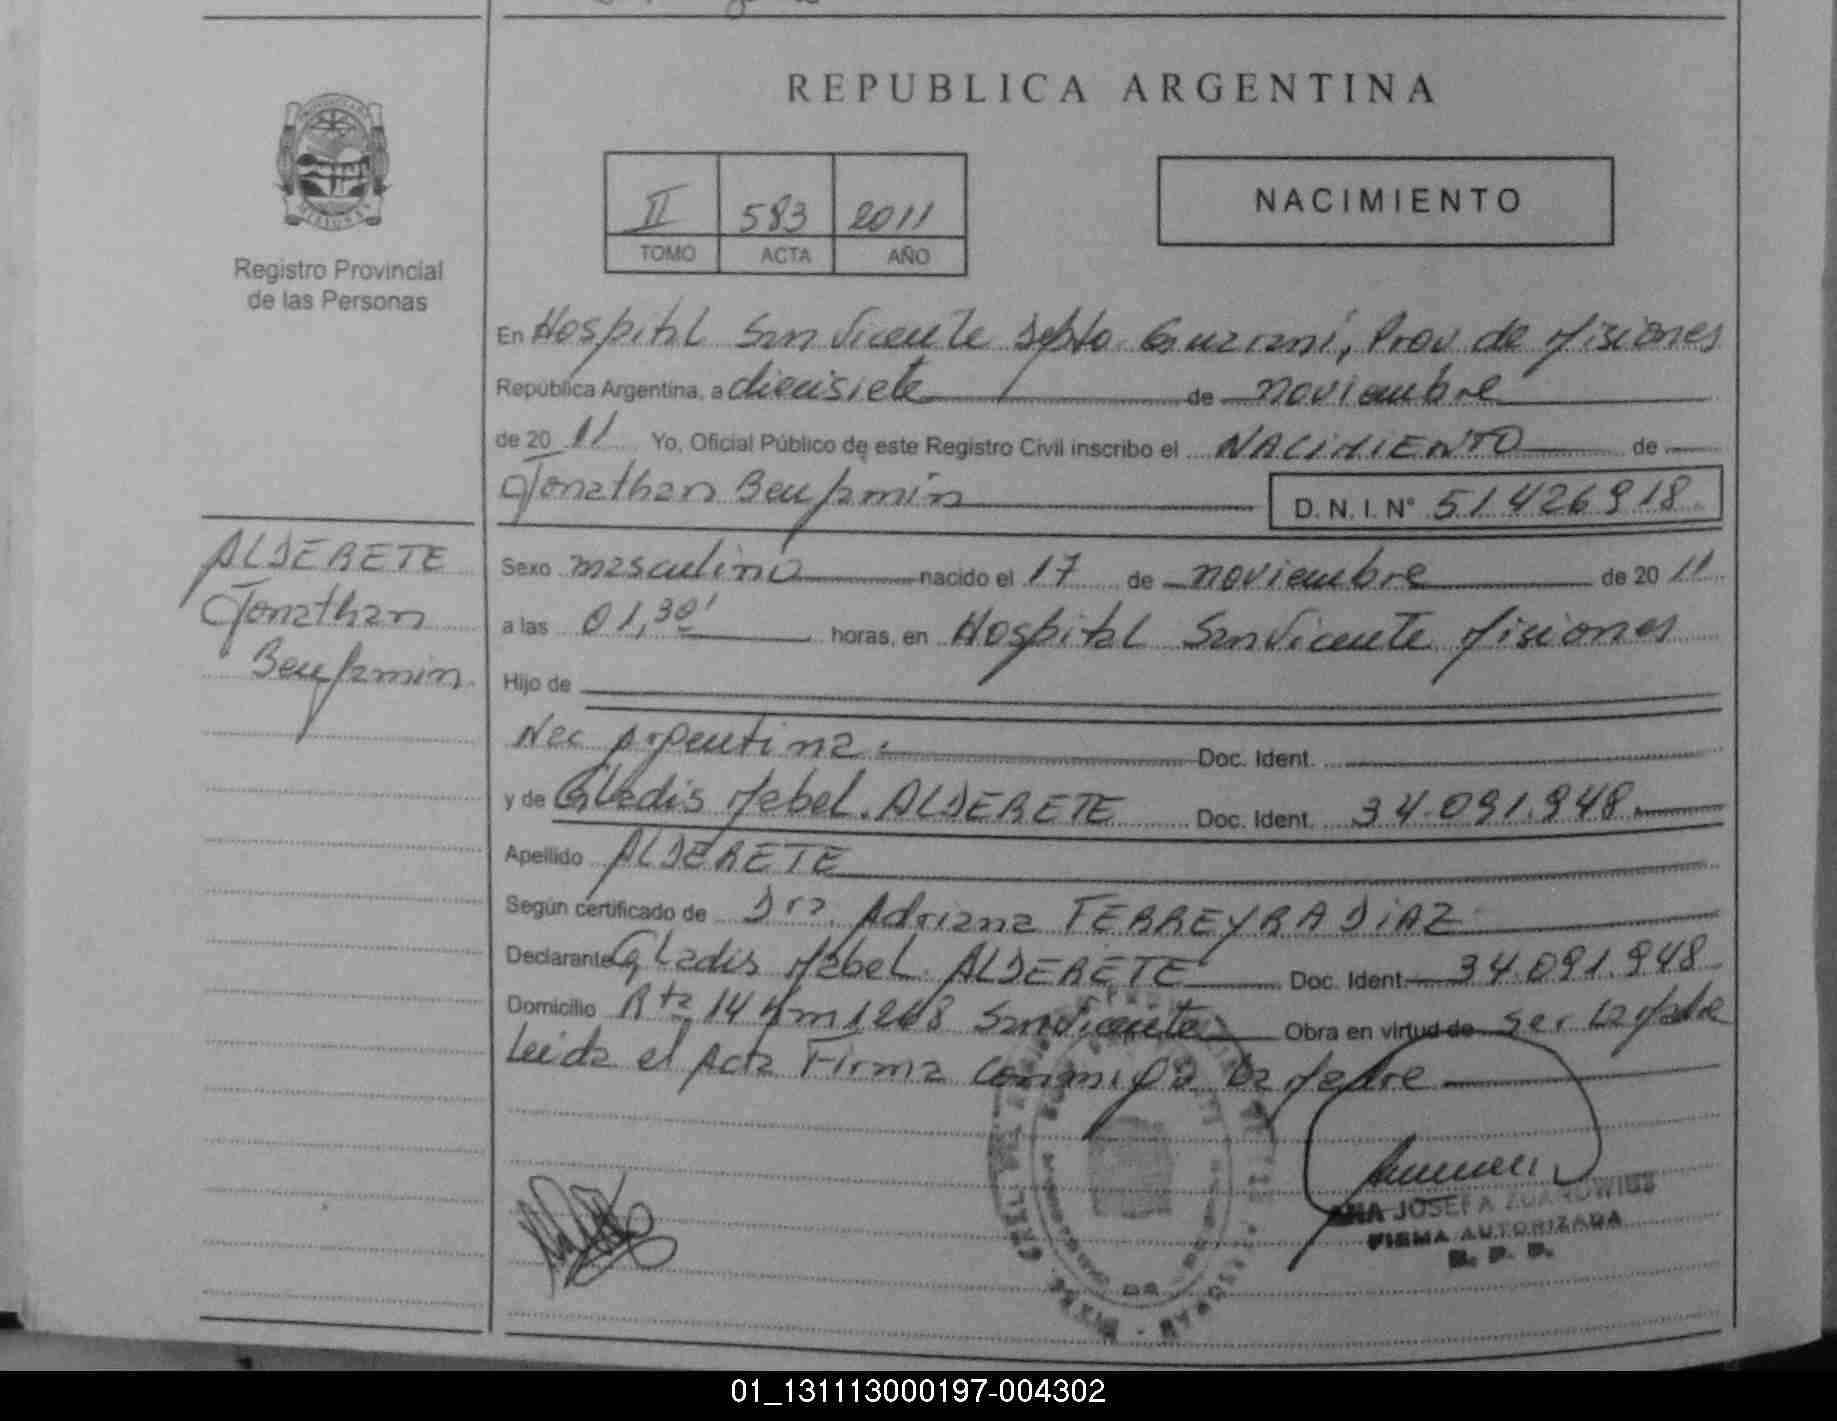 REPUBLICA ARGENTINA
Registro Provincial
de las Personas
II 583 2011
TOMO ACTA AÑO
NACIMIENTO
En Hospital San Vicente Depto Guarani, Prov de Misiones
República Argentina, a diecisiete de noviembre
de 20 11 Yo, Oficial Público de este Registro Civil inscribo el NACIMIENTO de
Jonathan Benjamin D. N. I. N° 51426918.
ALDERETE
Jonathan
Benjamin.
Sexo masculino nacido el 17 de noviembre de 20 11
a las 01,30' horas, en Hospital San Vicente Misiones
Hijo de
Nac Argentina. Doc. Ident.
y de Gladis Mabel. ALDERETE Doc. Ident. 34.091.948.
Apellido ALDERETE
Según certificado de Dra. Adriana FERREYRA DIAZ
Declarante Gladis Mabel. ALDERETE Doc. Ident. 34.091.948
Domicilio Rta 14 Km 1268 San Vicente Obra en virtud de ser La Madre
Leida el Acta Firma conmigo La Madre
ANA JOSEFA
FIRMA AUTORIZADA
R. P. P.
01_131113000197-004302